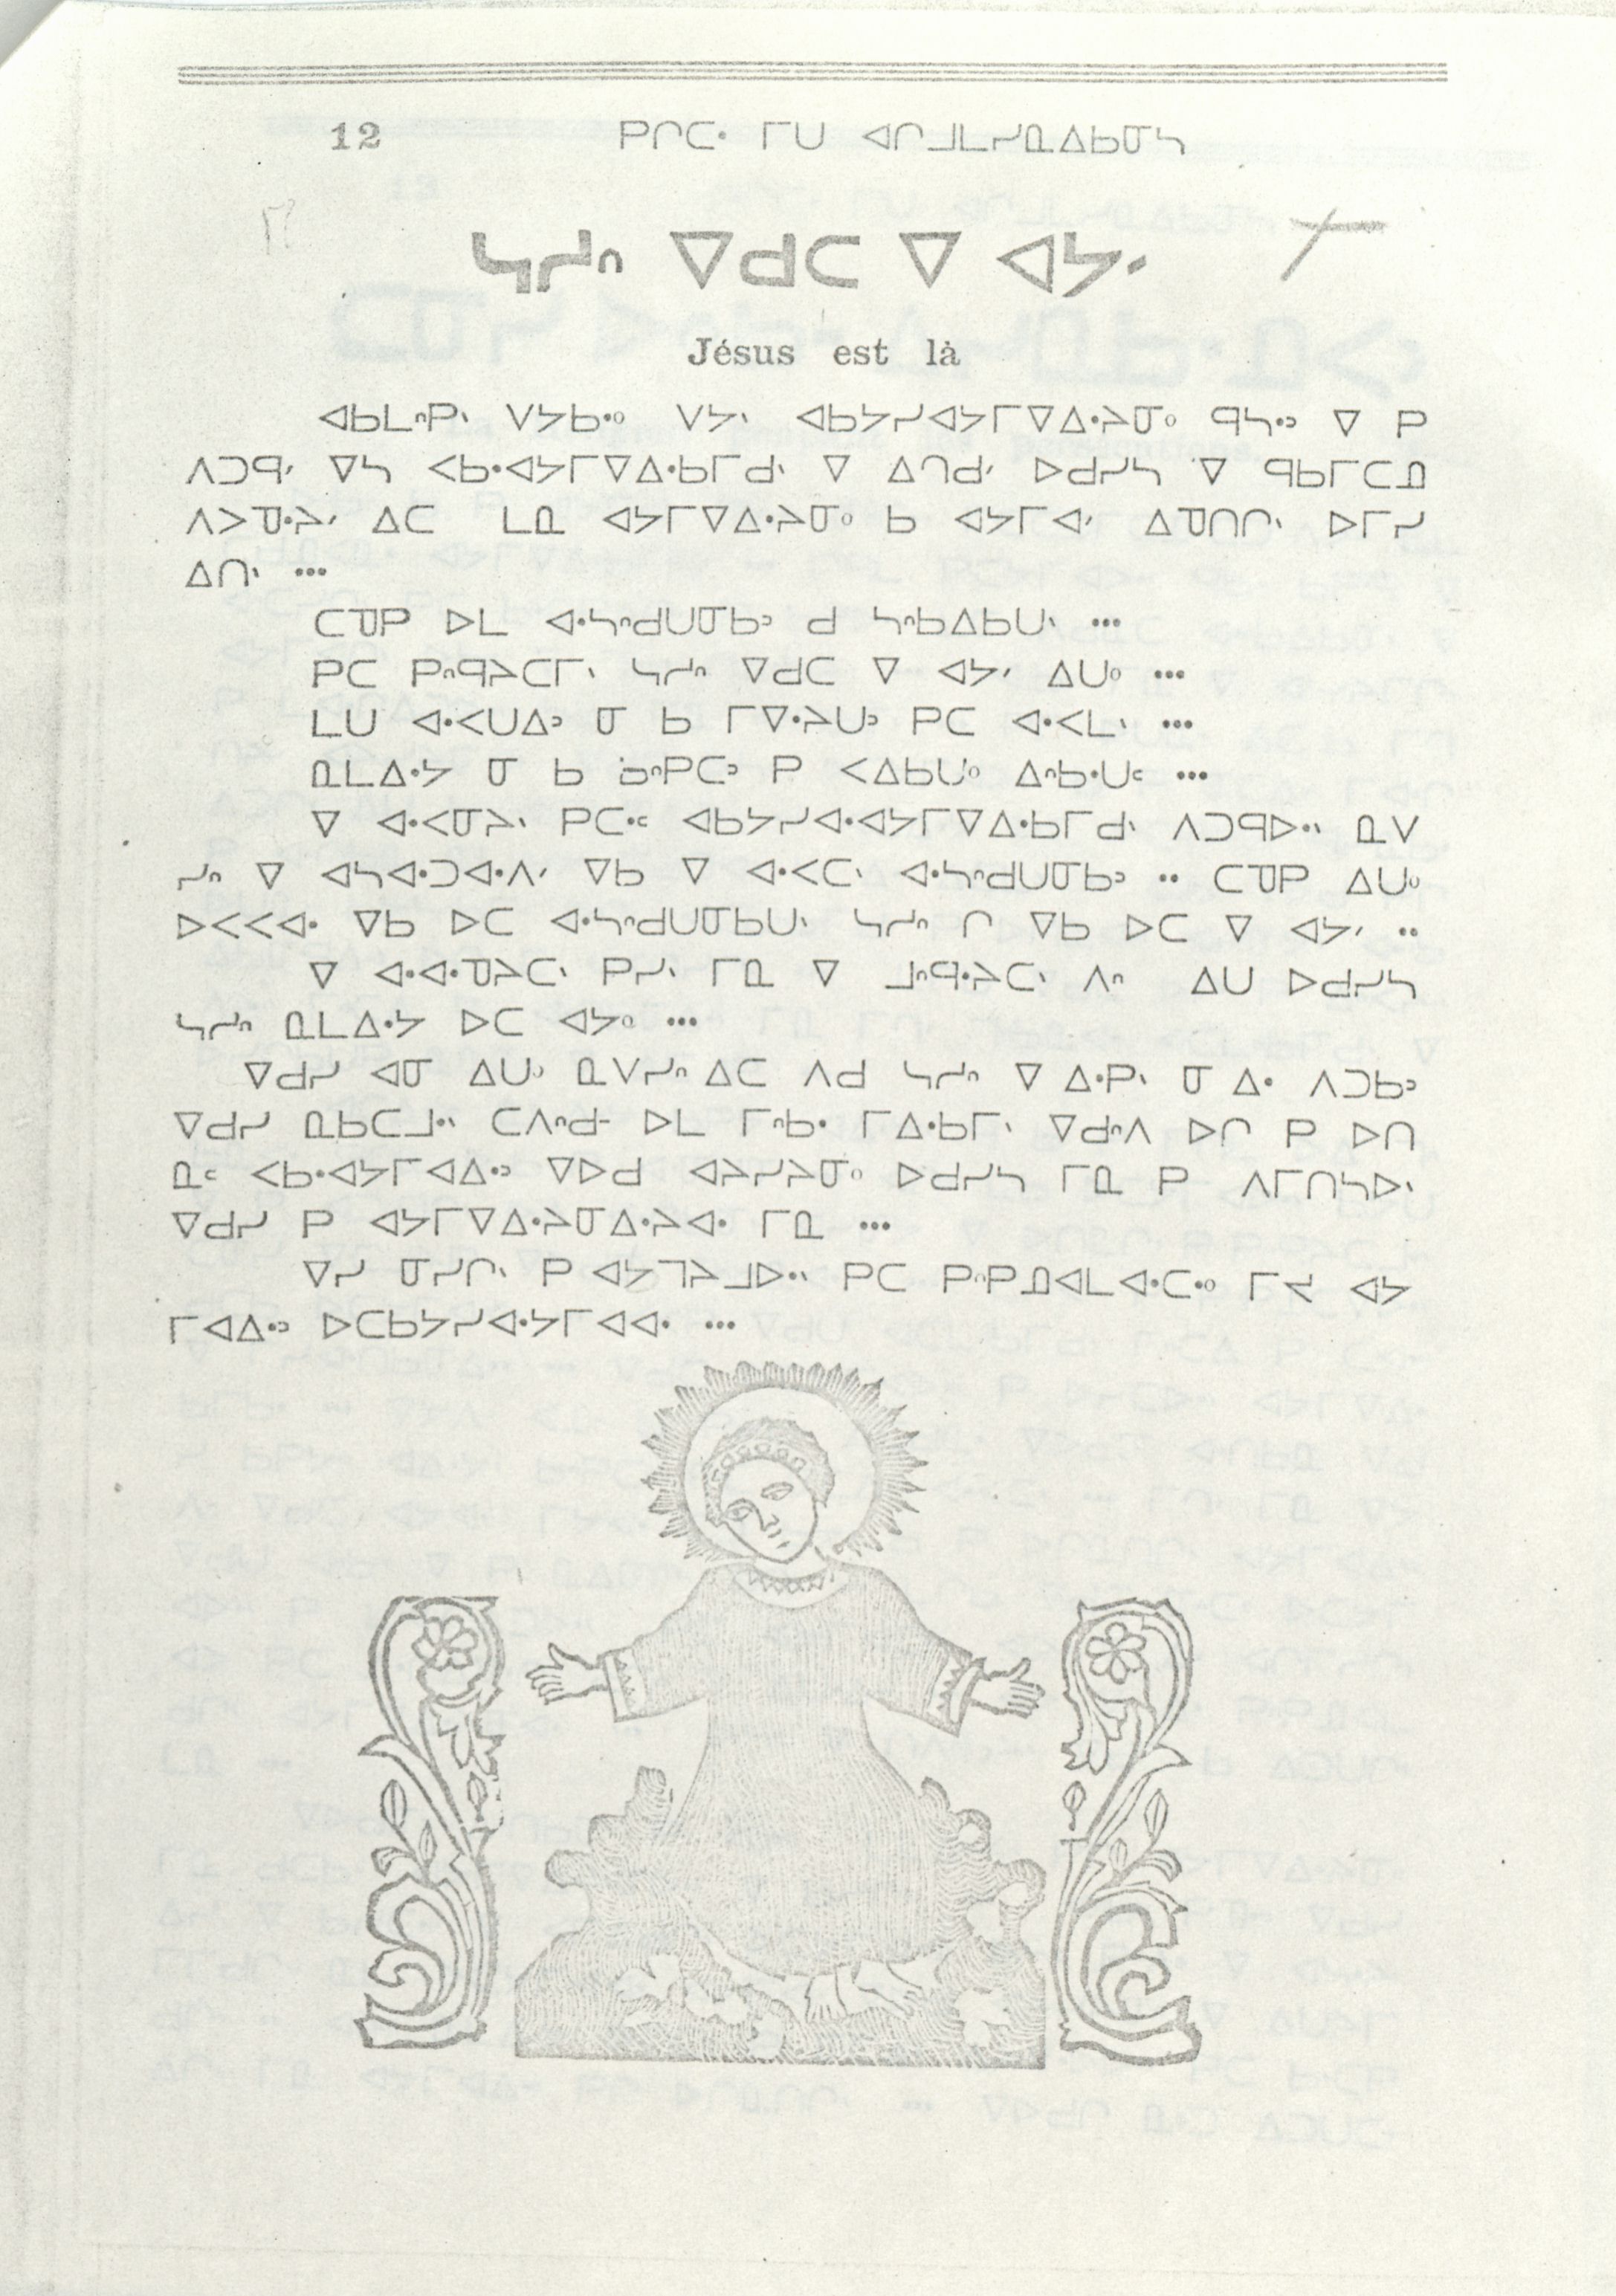 12 ᑭᒋᑕᐧ ᒥᑌ ᐊᒋᒧᒪᓯᓇᐃᑲᓂᓴ
ᓴᓱᐢ ᐁᑯᑕ ᐁ ᐊᔭᐟ
Jésus est là
ᐊᑲᒪᐢᑭᐠ ᐯᔭᑲᐧᐤ ᐯᔭᐠ ᐊᑲᔭᓯᐊᔭᒥᐁᐃᐧᔨᓂᐤ ᑫᓴᐧᐣ ᐁ ᑭ
ᐱᑐᑫᐟ ᐁᓴ ᐸᑲᐧᐊᔭᒥᐁᐃᐧᑲᒥᑯᐠ ᐁ ᐃᒋᑯᐟ ᐅᑯᓯᓴ ᐁ ᑫᑲᒥᑕᓄ
ᐱᐳᓀᐧᔨᐟ ᐃᑕ ᒪᓇ ᐊᔭᒥᐁᐃᐧᔨᓂᐤ ᑲ ᐊᔭᒥᐊᐟ ᐃᓀᑎᒋᐠ ᐅᒥᓯ
ᐃᑎᐠ •••
ᑕᓀᑭ ᐅᒪ ᐊᐧᓴᐢᑯᑌᓂᑲᐣ ᑯ ᓴᐢᑲᐃᑲᑌᐠ •••
ᑭᑕ ᑭᐢᑫᔨᑕᒥᐠ ᓴᓱᐢ ᐁᑯᑕ ᐁ ᐊᔭᐟ ᐃᑌᐤ •••
ᒪᑌ ᐊᐧᐸᑌᐃᐣ ᓂ ᑲ ᒥᐁᐧᔨᑌᐣ ᑭᑕ ᐊᐧᐸᒪᐠ •••
ᓇᒪᐃᐧᔭ ᓂ ᑲ ᑲᐢᑭᑕᐣ ᑭ ᐸᐃᑲᑌᐤ ᐃᐢᑲᐧᑌᑦ •••
ᐁ ᐊᐧᐸᓂᔨᐠ ᑭᑕᐧᑦ ᐊᑲᔭᓯᐊᐧᐊᔭᒥᐁᐃᐧᑲᒥᑯᐠ ᐱᑐᑫᐅᐧᐠ ᓇᐯ
ᓯᐢ ᐁ ᐊᓴᐊᐧᑐᐊᐧᐱᐟ ᐁᑲ ᐁ ᐊᐧᐸᑕᐠ ᐊᐧᓴᐢᑯᑌᓂᑲᐣ •• ᑕᓀᑭ ᐃᑌᐤ
ᐅᐸᐸᐊᐧ ᐁᑲ ᐅᑕ ᐊᐧᓴᐢᑯᑌᓂᑲᑌᐠ ᓴᓱᐢ ᒋ ᐁᑲ ᐅᑕ ᐁ ᐊᔭᐟ ••
ᐁ ᐊᐧᐊᐧᓀᔨᑕᐠ ᑭᓯᐠ ᒥᓇ ᐁ ᒧᐢᑫᐧᔨᑕᐠ ᐱᐢ ᐃᑌ ᐅᑯᓯᓴ
ᓴᓱᐢ ᓇᒪᐃᐧᔭ ᐅᑕ ᐊᔭᐤ •••
ᐁᑯᓯ ᐊᓂ ᐃᑌᐣ ᓇᐯᓯᐢ ᐃᑕ ᐱᑯ ᓴᓱᐢ ᐁ ᐃᐧᑭᐠ ᓂ ᐃᐧ ᐱᑐᑲᐣ
ᐁᑯᓯ ᓇᑲᑕᒧᐧᐠ ᑕᐱᐢᑯᐨ ᐅᒪ ᒥᐢᑲᐧ ᒥᐃᐧᑲᒥᐠ ᐁᑯᐢᐱ ᐅᒋ ᑭ ᐅᑎ
ᓇᑦ ᐸᑲᐧᐊᔭᒥᐊᐃᐧᐣ ᐁᐅᑯ ᐊᔨᓯᔨᓂᐤ ᐅᑯᓯᓴ ᒥᓇ ᑭ ᐱᒥᑎᓴᐅᐠ
ᐁᑯᓯ ᑭ ᐊᔭᒥᐁᐃᐧᔨᓂᐃᐧᔨᐊᐧ ᒥᓇ •••
ᐁᓯ ᓂᓯᒋᐠ ᑭ ᐊᔭᒣᔨᒧᐅᐧᐠ ᑭᑕ ᑭᐢᑭᓄᐊᒪᐊᐧᑕᐧᐤ ᒥᔪ ᐊᔭ
ᒥᐊᐃᐧᐣ ᐅᑕᑲᔭᓯᐊᐧᔭᒥᐊᐊᐧ •••